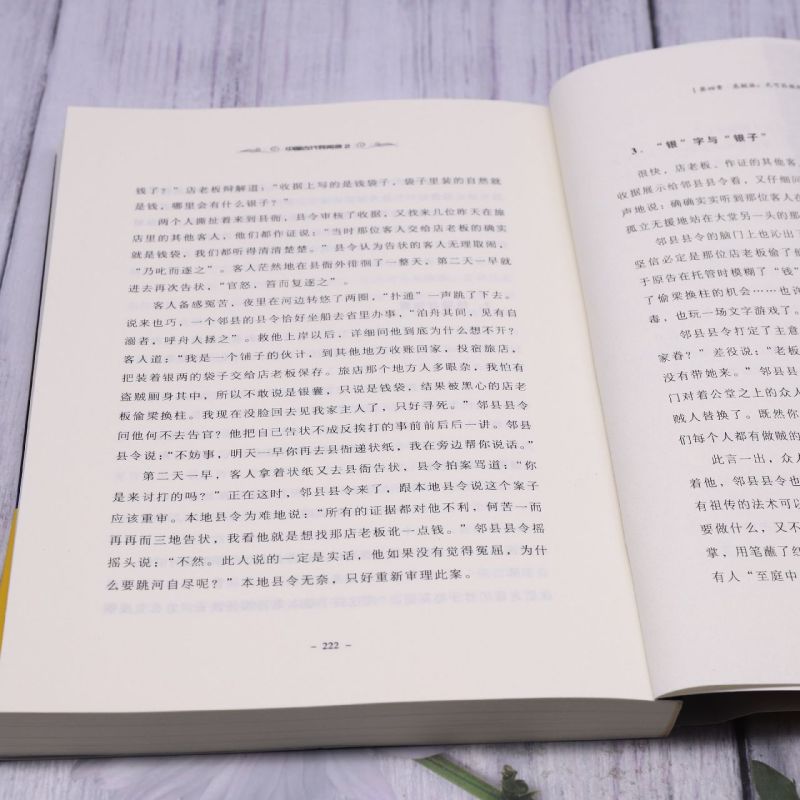 中国古代奇闻录 2
钱了?”店老板辩解道:“收据上写的是钱袋子,袋子里装的自然就
是钱,哪里会有什么银子?”
两个人撕扯着来到县衙,县令审核了收据,又找来几位昨天在旅
店里的其他客人,他们都作证说:“当时那位客人交给店老板的确实
就是钱袋,我们都听得清清楚楚。”县令认为告状的客人无理取闹,
“乃叱而逐之”。客人茫然地在县衙外徘徊了一整天,第二天一早就
进去再次告状,“官怒,笞而复逐之”。
客人备感冤苦,夜里在河边转悠了两圈,“扑通”一声跳了下去。
说来也巧,一个邻县的县令恰好坐船去省里办事,“泊舟其间,见有自
溺者,呼舟人拯之”。救他上岸以后,详细问他到底为什么想不开?
客人道:“我是一个铺子的伙计,到其他地方收账回家,投宿旅店,
把装着银两的袋子交给店老板保存。旅店那个地方人多眼杂,我怕有
盗贼厕身其中,所以不敢说是银囊,只说是钱袋,结果被黑心的店老
板偷梁换柱。我现在没脸回去见我家主人了,只好寻死。”邻县县令
问他何不去告官?他把自己告状不成反挨打的事前前后后一讲。邻县
县令说:“不妨事,明天一早你再去县衙递状纸,我在旁边帮你说话。”
第二天一早,客人拿着状纸又去县衙告状,县令拍案骂道:“你
是来讨打的吗?”正在这时,邻县县令来了,跟本地县令说这个案子
应该重审。本地县令为难地说:“所有的证据都对他不利,何苦一而
再再而三地告状,我看他就是想找那店老板讹一点钱。”邻县县令摇
摇头说:“不然。此人说的一定是实话,他如果没有觉得冤屈,为什
么要跳河自尽呢?”本地县令无奈,只好重新审理此案。
- 222 -
第四章
3. “银”字与“银子”
很快,店老板、作证的其他客
收据展示给邻县县令看,又仔细问
声地说:确确实实听到那位客人在
孤立无援地站在大堂另一头的那
邻县县令的脑门上也沁出了
坚信必定是那位店老板偷了他
于原告在托管时模糊了“钱”
了偷梁换柱的机会……也许
毒,也玩一场文字游戏了。
邻县县令打定了主意
家眷?”差役说:“老板
没有带她来。”邻县县
门对着公堂之上的众人
贼人替换了。既然你
们每个人都有做贼的
此言一出,众人
着他,邻县县令也
有祖传的法术可以
要做什么,又不
掌,用笔蘸了红
有人“至庭中